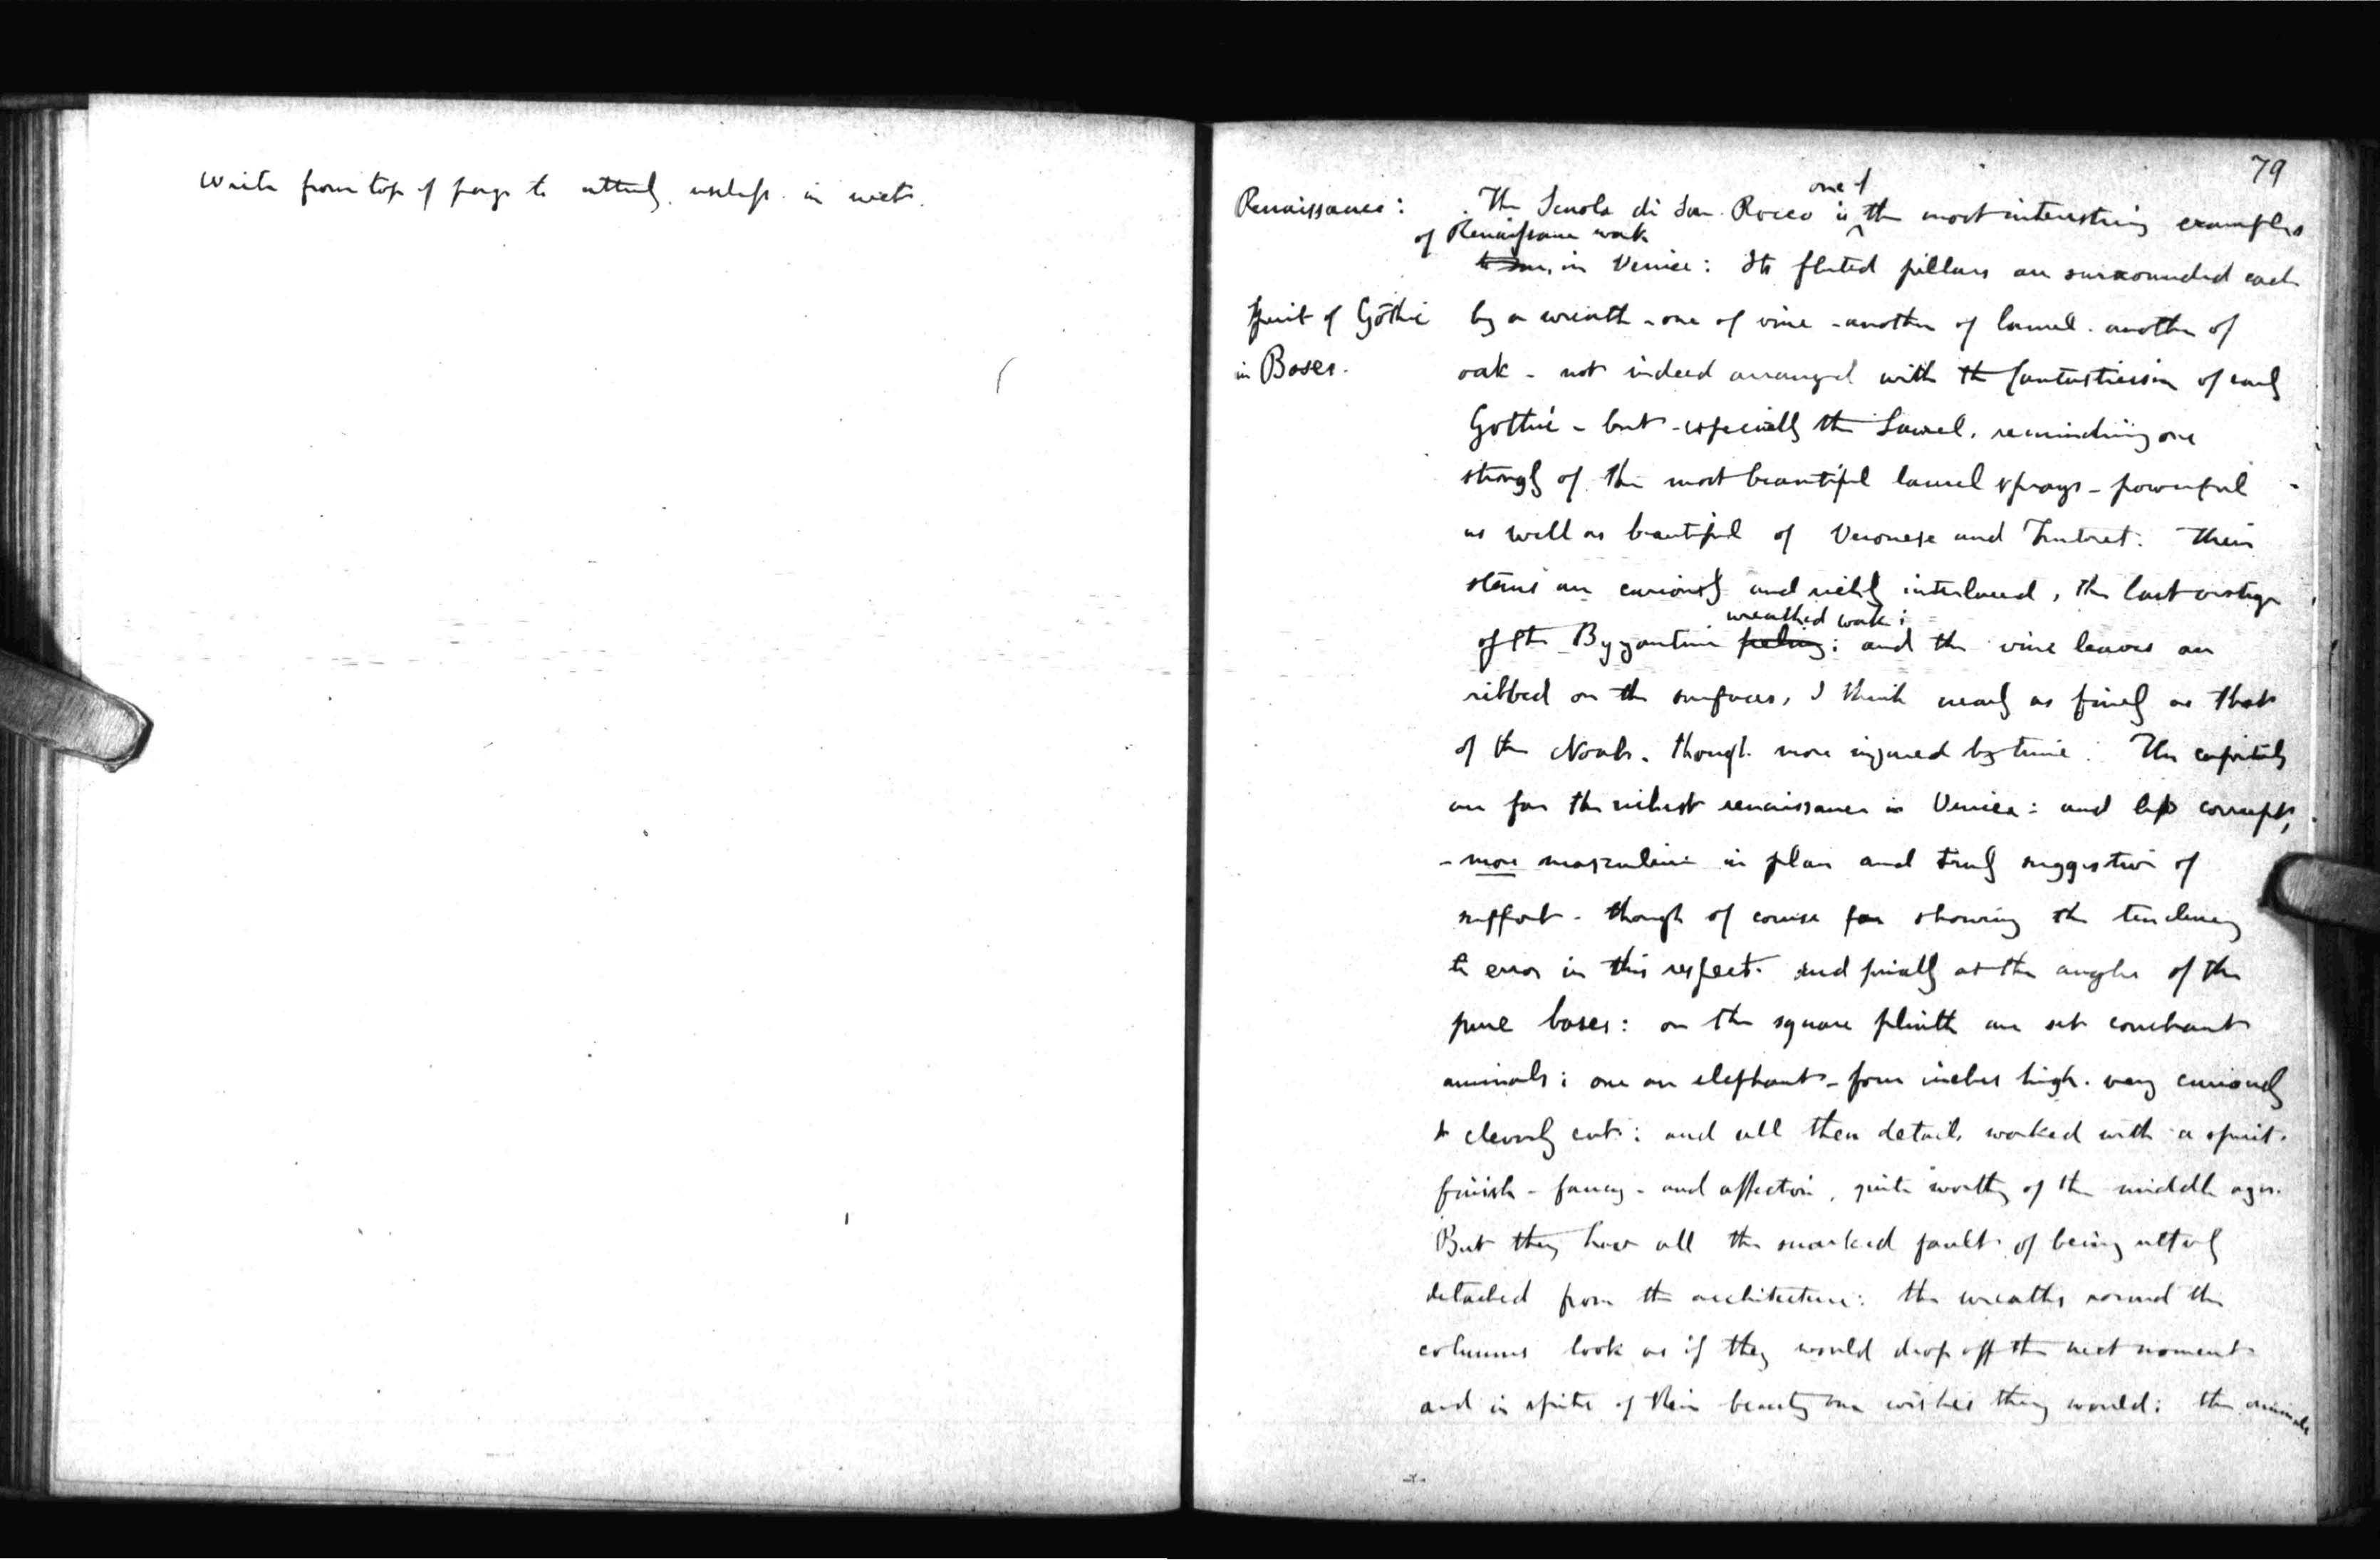 Write from top of page to utterly useless in next.
79
Renaissance:
Spirit of Gothic
in Bases.
The Scuola di San Rocco is one of the most interesting examples
of Renaissance work in Venice: Its fluted pillars are surrounded each
by a wreath - one of vine - another of laurel - another of
oak - not indeed arranged with the fantasticism of early
Gothic - but - especially the Laurel, reminding one
strongly of the most beautiful laurel sprays - powerful
as well as beautiful of Veronese and Tintret: Their
stems are curiously and richly interlaced, the last vestige
of the Byzantine feeling: wreathed work: and the vine leaves are
ribbed on the surfaces, I think nearly as finely as that
of the Noah - though more injured by time: The capitals
are far the richest renaissance in Venice: and less corrupt,
- more masculine in plan and truly suggestive of
support - though of course far showing the tendency
to error in this respect. And finally at the angles of the
pure bases: on the square plinth are set couchant
animals: one an elephant - four inches high - very curiously
& cleverly cut: and all these details worked with a spirit.
finish - fancy - and affection, quite worthy of the middle ages.
But they have all the marked fault of being utterly
detached from the architecture: the wreaths round the
columns look as if they would drop off the next moment
and in spite of their beauty one wishes they would: the animals